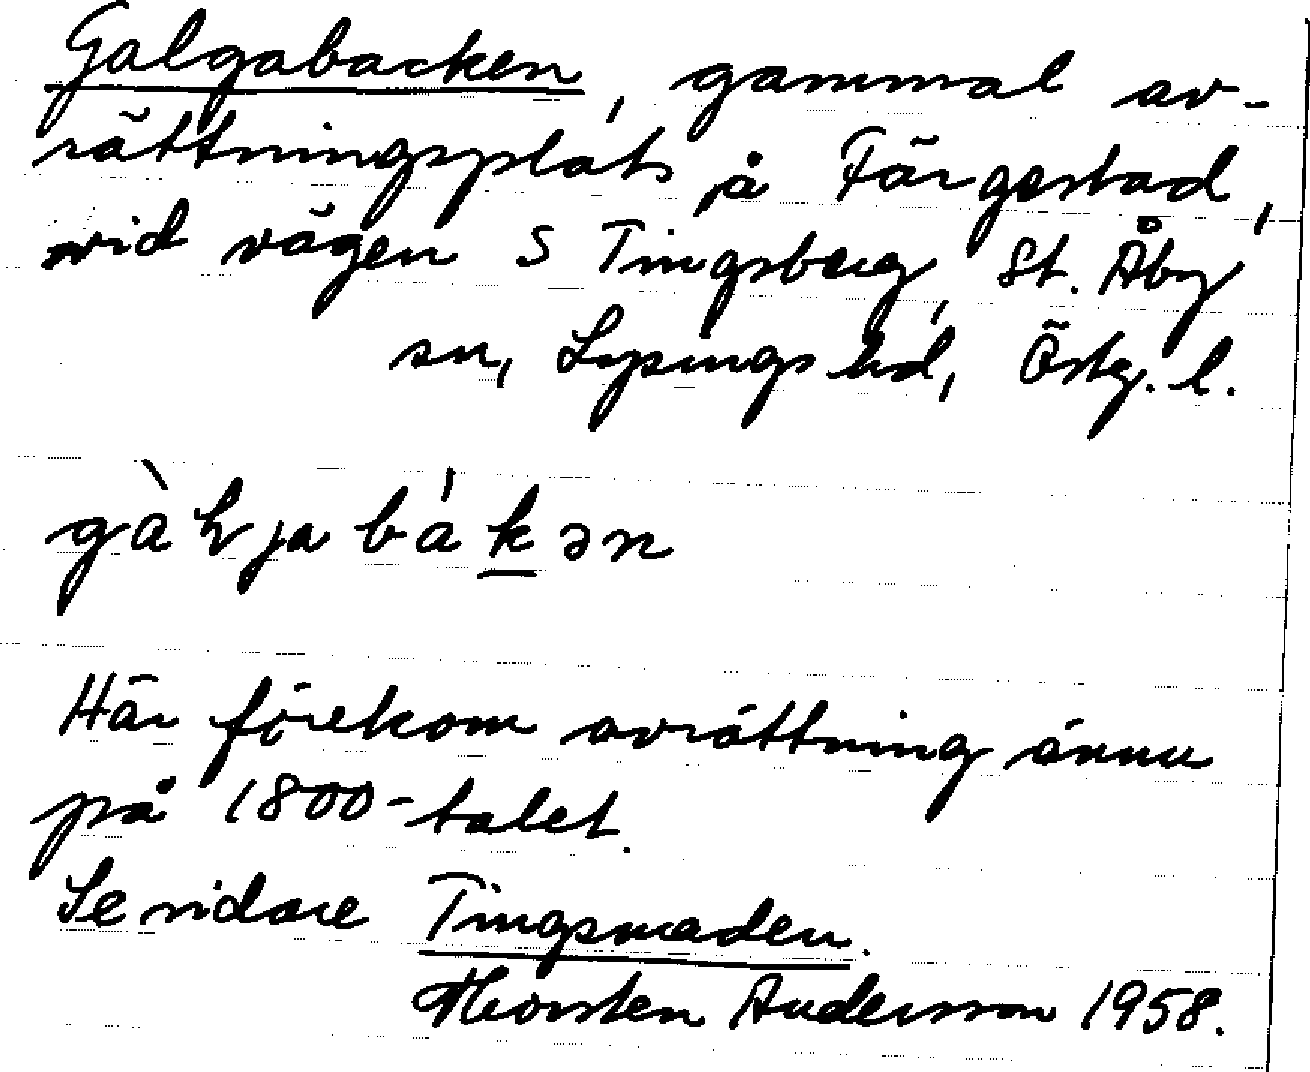 Galgabacken, gammal av-
rättningsplats på Färgestad,
vid vägen S Tingsberg, St. Åby
sn, Lysings hd, Östg. l.
gàlıjabákən
Här förekom avrättning ännu
på 1800-talet.
Se vidare Tingsmaden.
Thorsten Andersson 1958.